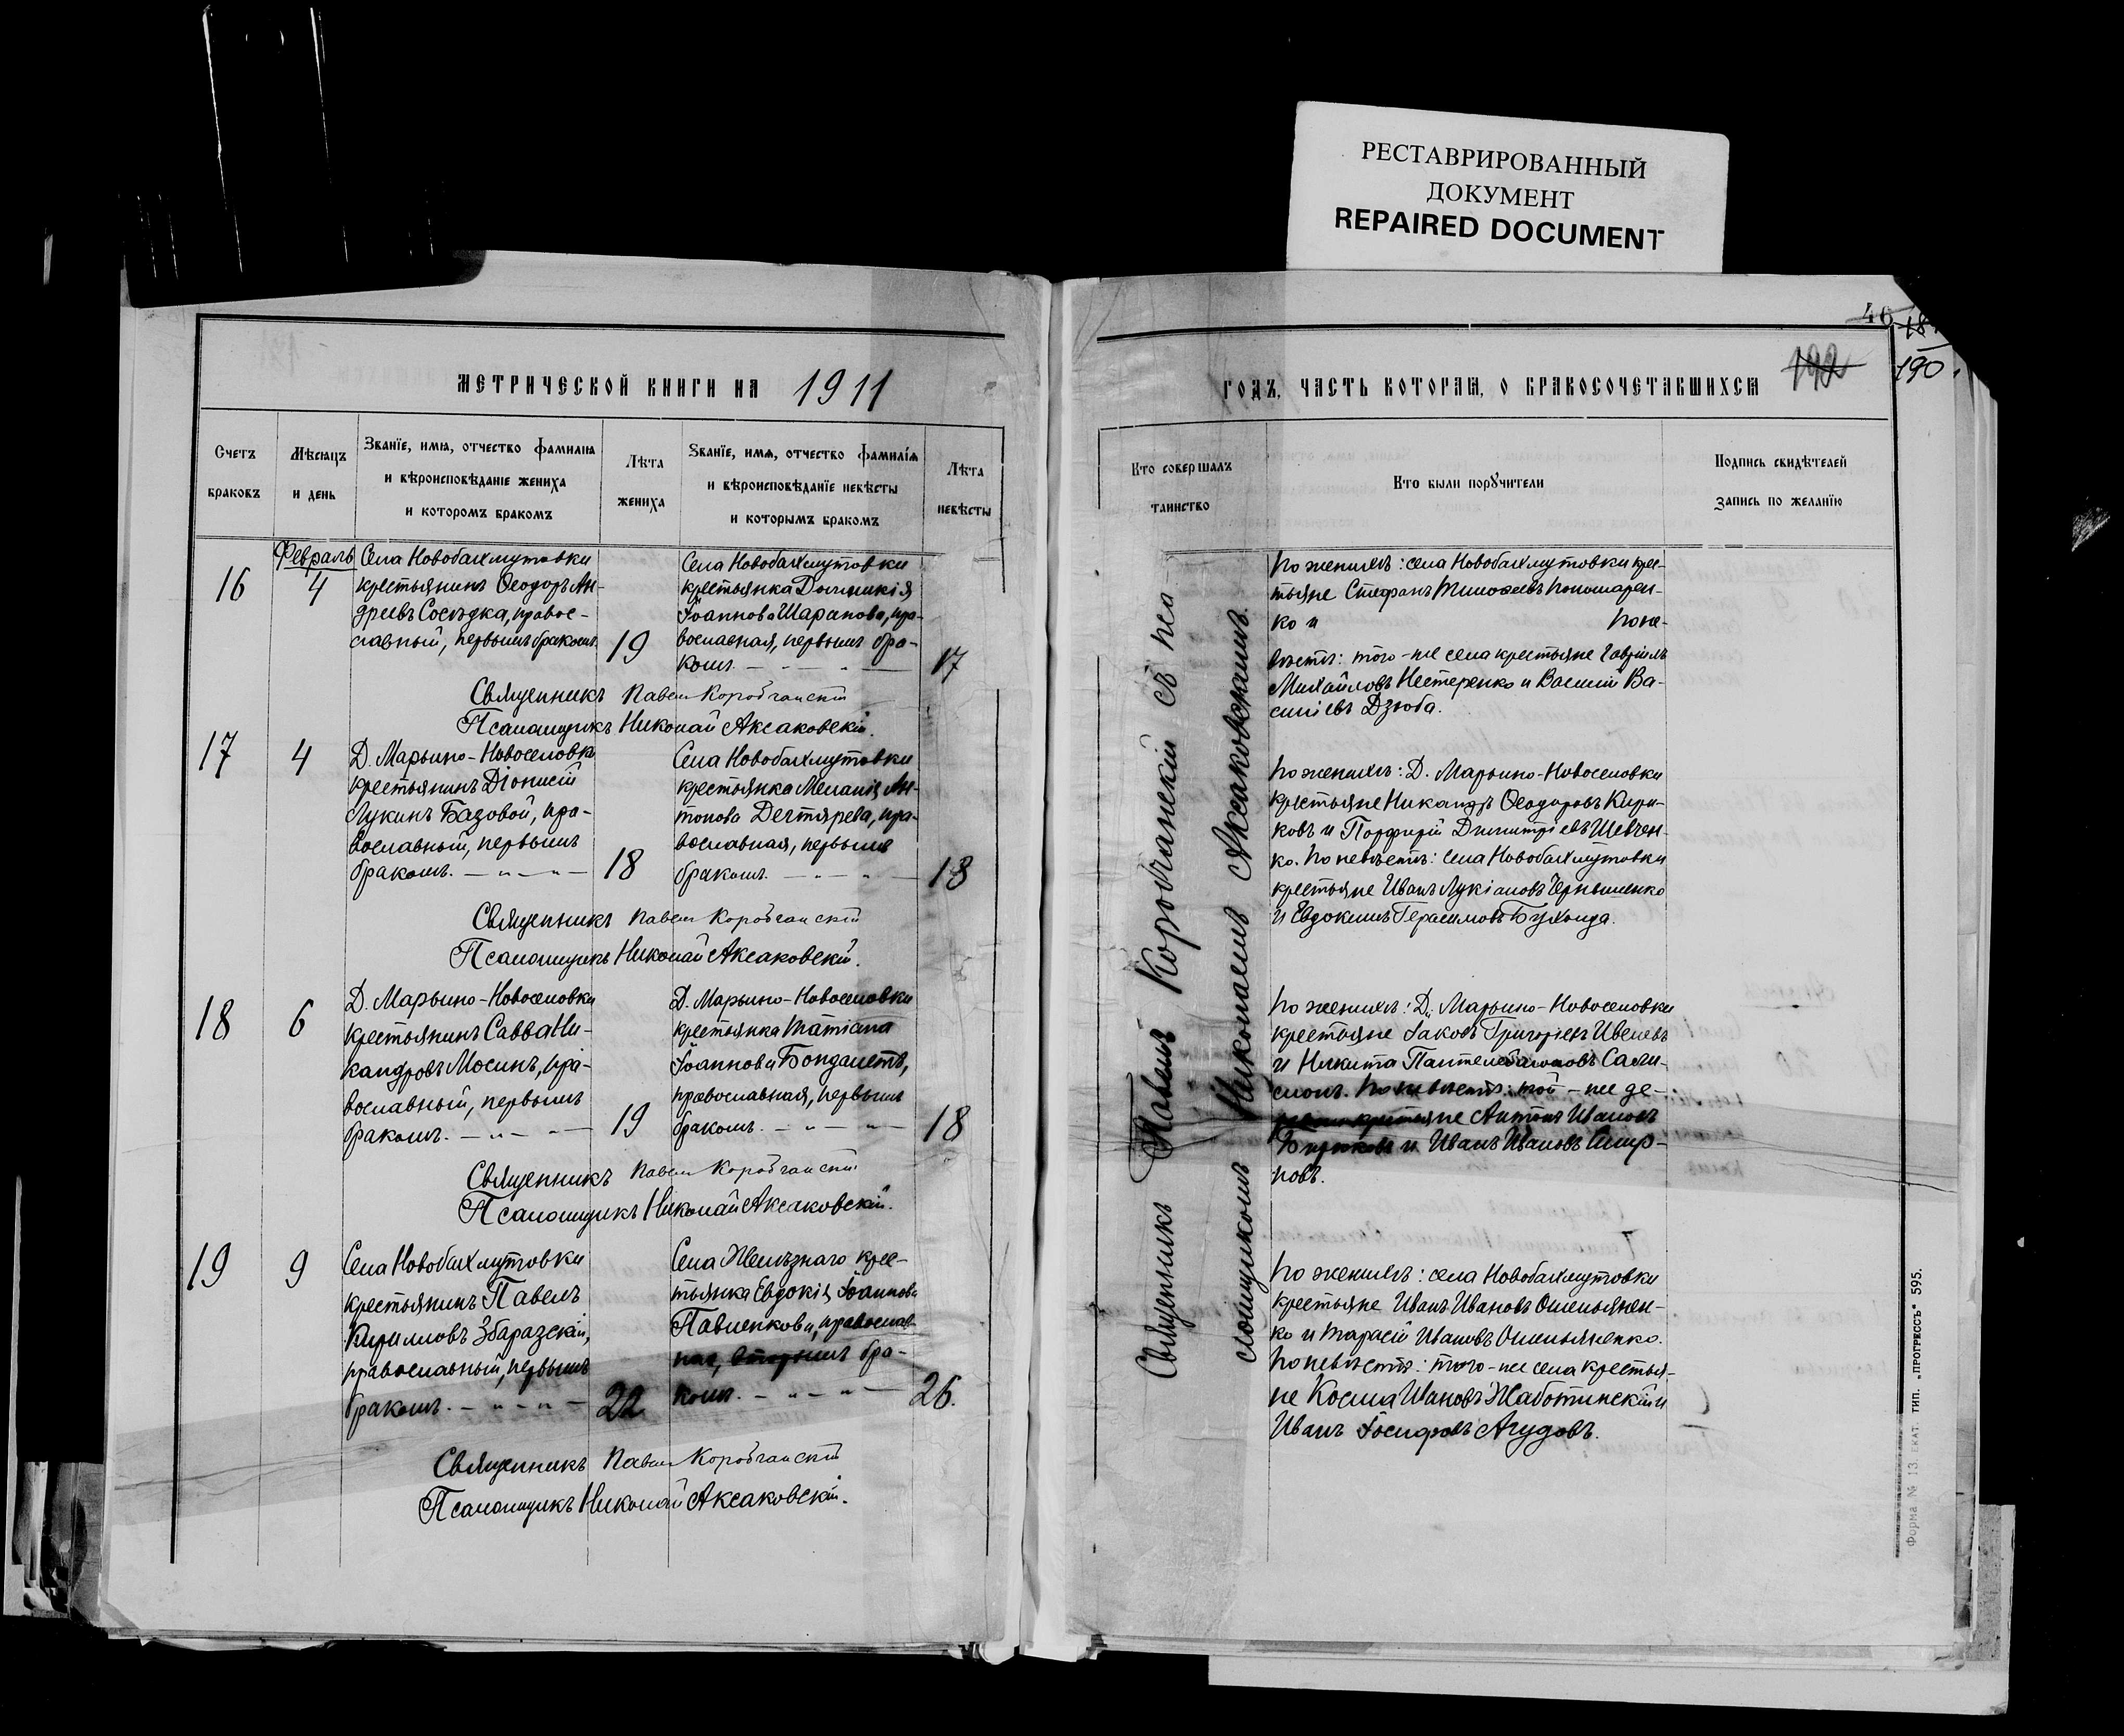 РЕСТАВРИРОВАННЫЙ
ДОКУМЕНТ
REPAIRED DOCUMENT
46
190.
192
МЕТРИЧЕСКОЙ КНИГИ НА 1911
Счетъ
браковъ
Мѣсяцъ
и день
Званїе, имя, отчество фамилия
и вѣроисповѣданїе жениха
и которомъ бракомъ
Лѣта
жениха
Званїе, имя, отчество фамилїя
и вѣроисповѣданїе невѣсты
и которымъ бракомъ
Лѣта
невѣсты
16
Февраль
4
Села Новобахмутовки
крестьянинъ Ѳеодоръ Ан-
дреевъ Сосѣдка, правос-
лавный, первымъ бракомъ.
19
Села Новобахмутовки
крестьянка Домникія
Іоаннова Шарапова, пра-
вославная, первымъ бра-
комъ. — " — " —
17
Священникъ Павелъ Коробчанскій
Псаломщикъ Николай Аксаковскій.
17
4
Д. Марьино-Новоселовки
крестьянинъ Діонисій
Лукинъ Базовой, пра-
вославный, первымъ
бракомъ. — " — " —
18
Села Новобахмутовки
крестьянка Меланія Ан-
тонова Дегтярева, пра-
вославная, первымъ
бракомъ. — " — " —
18
Священникъ Павелъ Коробчанскій
Псаломщикъ Николай Аксаковскій.
18
6
Д. Марьино-Новоселовки
крестьянинъ Савва Ни-
кандровъ Мосинъ, пра-
вославный, первымъ
бракомъ. — " — " —
19
Д. Марьино-Новоселовки
крестьянка Татіана
Іоаннова Бондалетъ,
православная, первымъ
бракомъ. — " — " —
18
Священникъ Павелъ Коробчанскій
Псаломщикъ Николай Аксаковскій.
19
9
Села Новобахмутовки
крестьянинъ Павелъ
Кирилловъ Збаразскій,
православный, первымъ
бракомъ. — " — " —
22
Села Желѣзнаго крес-
тьянка Евдокія Іоаннова
Павленкова, православ-
ная, вторымъ бра-
комъ. — " — " —
26.
Священникъ Павелъ Коробчанскій
Псаломщикъ Николай Аксаковскій.
ГОДЪ, ЧАСТЬ КОТОРАЯ, О БРАКОСОЧЕТАВШИХСЯ
Кто совершалъ
таинство
Кто были порꙋчители
Подпись свидѣтелей
запись по желанїю
Священникъ Павелъ Коробчанскій съ пса-
ломщикомъ Николаемъ Аксаковскимъ.
По женихѣ: села Новобахмутовки крес-
тьяне Стефанъ Тимоѳеевъ Пономарен-
ко и По не-
вѣстѣ: того-же села крестьяне Гавріилъ
Михайловъ Нестеренко и Василій Ва-
силіевъ Дзюба.
По женихѣ: Д. Марьино-Новоселовки
крестьяне Никандръ Ѳеодоровъ Кири-
ковъ и Порфирій Димитріевъ Шевчен-
ко. По невѣстѣ: села Новобахмутовки
крестьяне Иванъ Лукіановъ Чернышенко
и Евдокимъ Герасимовъ Бухонда.
По женихѣ: Д. Марьино-Новоселовки
крестьяне Іаковъ Григоріевъ Ивлевъ
и Никита Пантелеймоновъ Сами-
слонъ. По невѣстѣ: той-же де-
ревни крестьяне Антонъ Ивановъ
Бирюковъ и Иванъ Ивановъ Смир-
новъ.
По женихѣ: села Новобахмутовки
крестьяне Иванъ Ивановъ Омельянен-
ко и Тарасій Ивановъ Омельяненко.
По невѣстѣ: того-же села крестья-
не Косма Ивановъ Жаботинскій и
Иванъ Іосифовъ Агудовъ.
Форма № 13. ЕКАТ. ТИП. „ПРОГРЕССЪ“ 595.